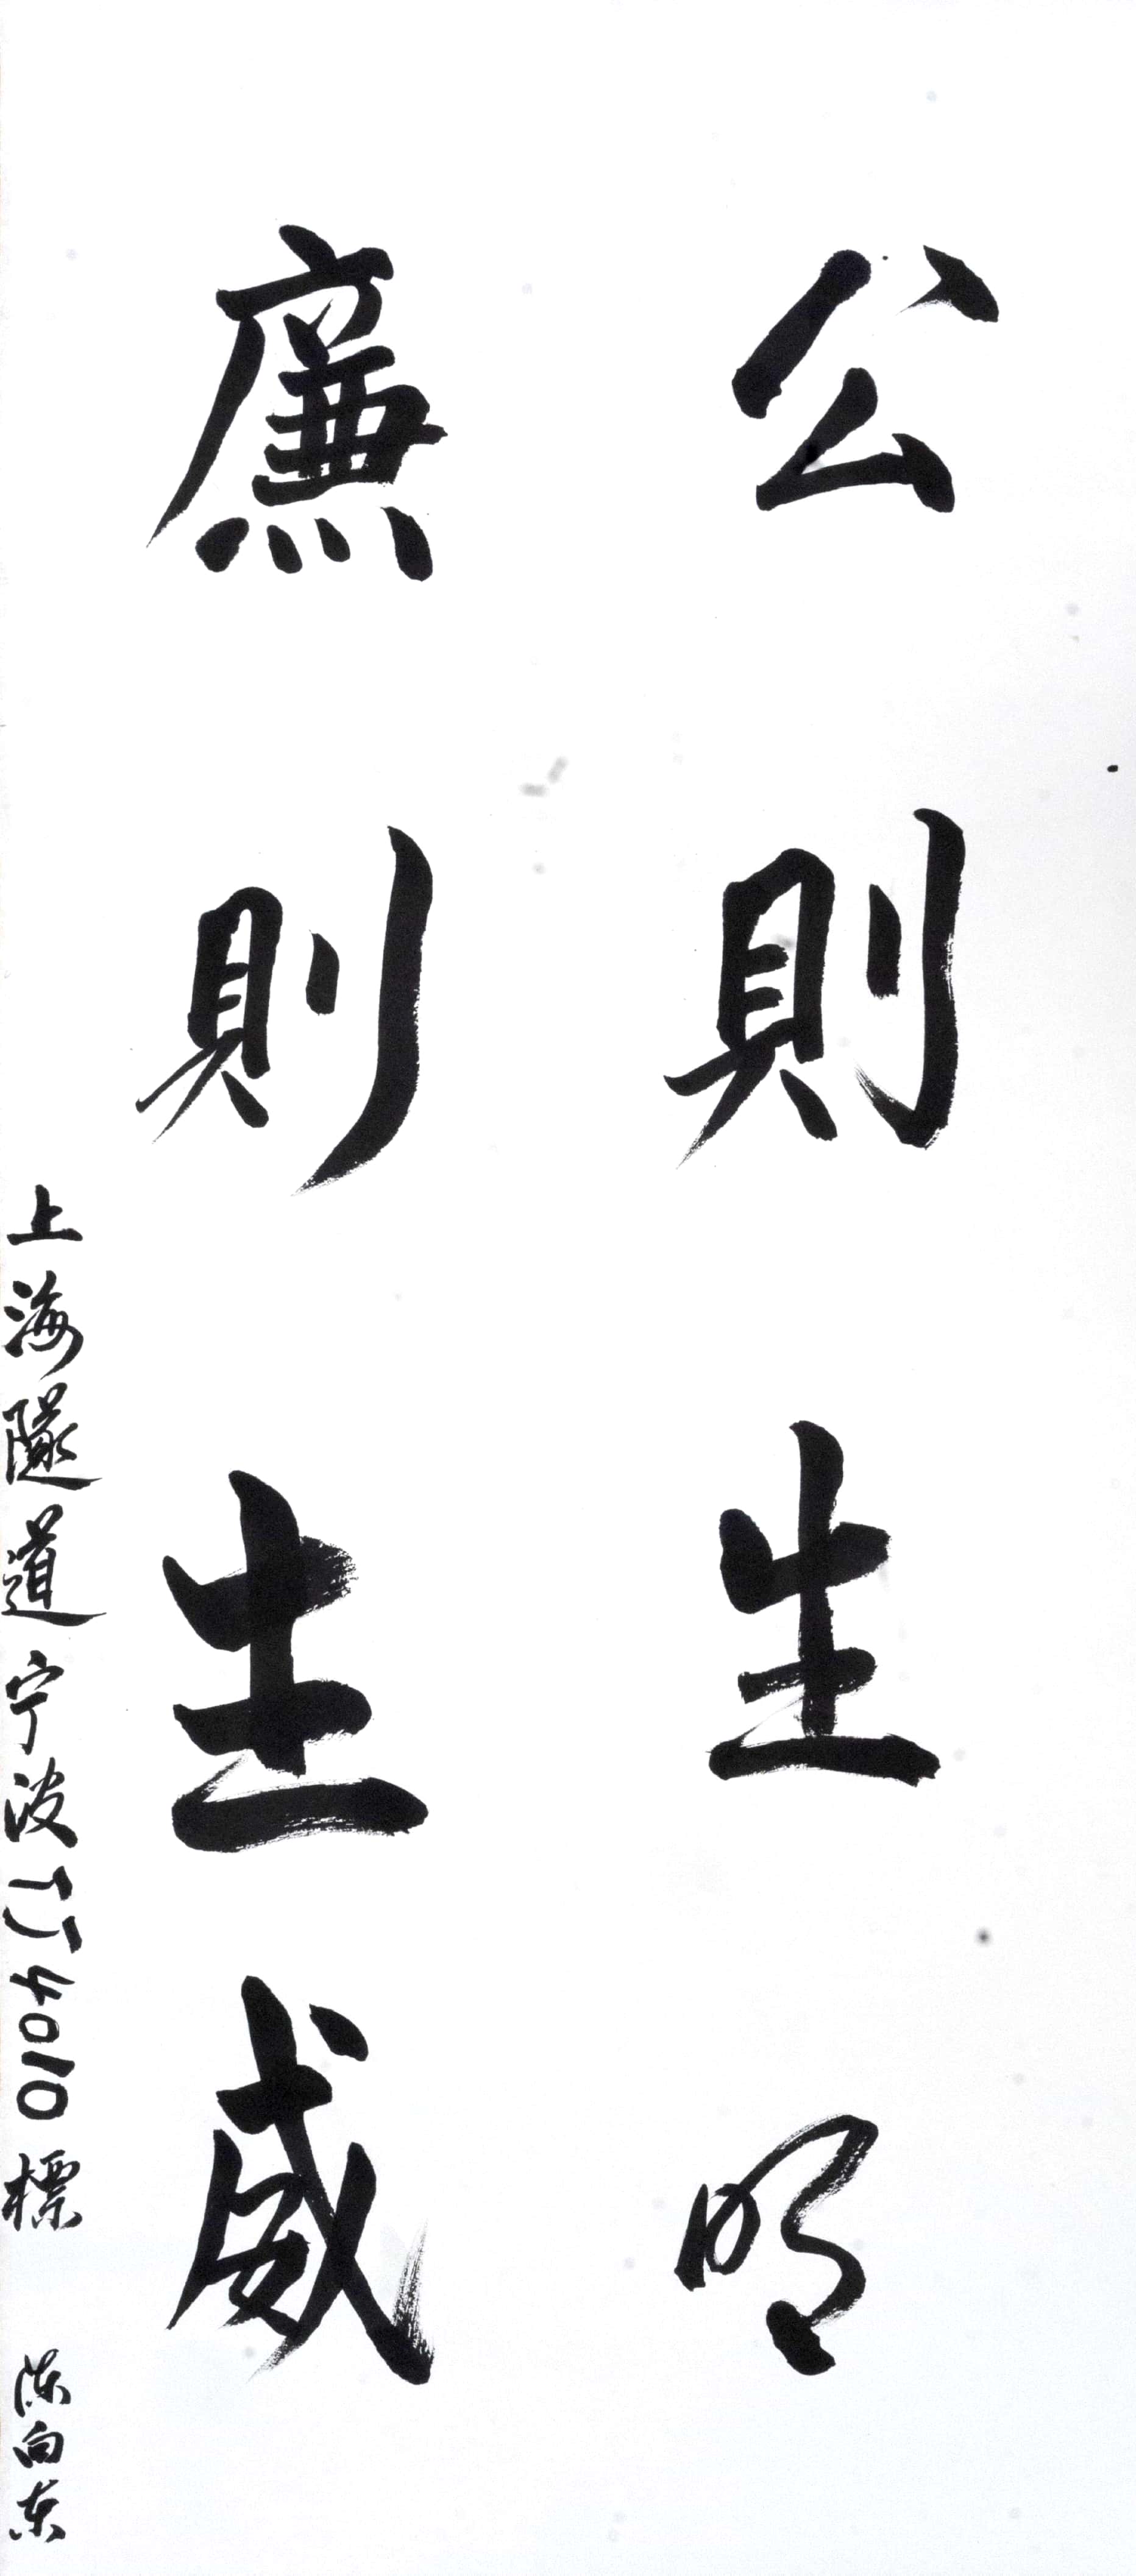 公則生明
廉則生威
上海隧道宁波TJ4010標 陈向东